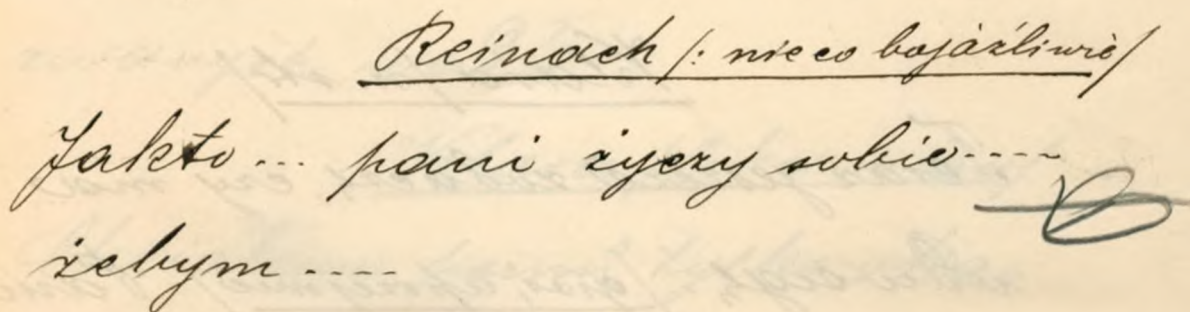 Reinach /: nieco bojaźliwie/
Jakto ... pani życzy sobie ....
żebym ....